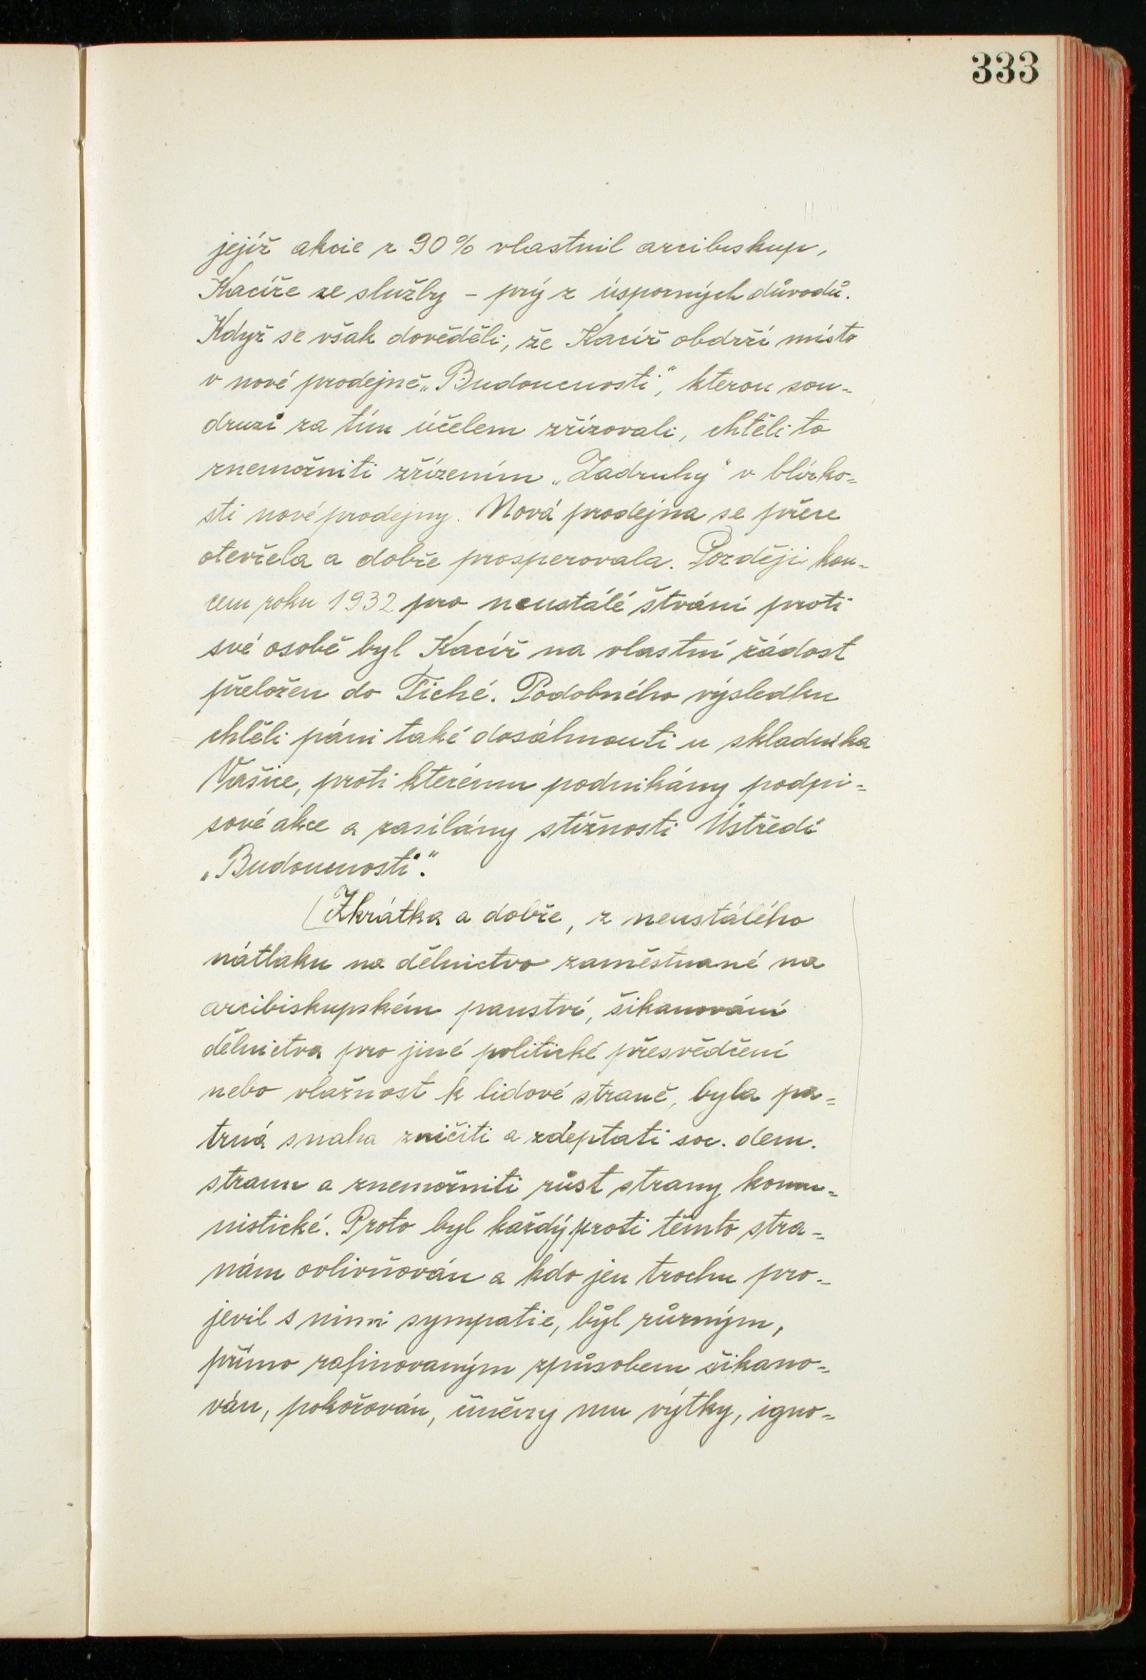 333
jejíž akcie z 90% vlastnil arcibiskup,
Kacíře ze služby – prý z úsporných důvodů.
Když se však dověděli, že Kacíř obdrží místo
v nové prodejně „Budoucnosti", kterou sou-
druzi za tím účelem zřizovali, chtěli to
znemožniti zřízením „Zadruhy" v blízko-
sti nové prodejny. Nová prodejna se přece
otevřela a dobře prosperovala. Později kon-
cem roku 1932 pro neustálé štvaní proti
své osobě byl Kacíř na vlastní žádost
přeložen do Tiché. Podobného výsledku
chtěli páni také dosáhnouti u skladníka
Vašice, proti kterému podnikány podpi-
sové akce a zasílány stížnosti Ústředí
„Budoucnosti."
(Zkrátka a dobře, z neustálého
nátlaku na dělnictvo zaměstnané na
arcibiskupském panství, šikanování
dělnictva pro jiné politické přesvědčení
nebo vlažnost k lidové straně, byla pa-
trná snaha zničiti a zdeptati soc. dem.
stranu a znemožniti růst strany komu-
nistické. Proto byl každý proti těmto stra-
nám ovlivňován a kdo jen trochu pro-
jevil s nimi sympatie, byl různým,
přímo rafinovaným způsobem šikano-
ván, pokořován, činěny mu výtky, igno-